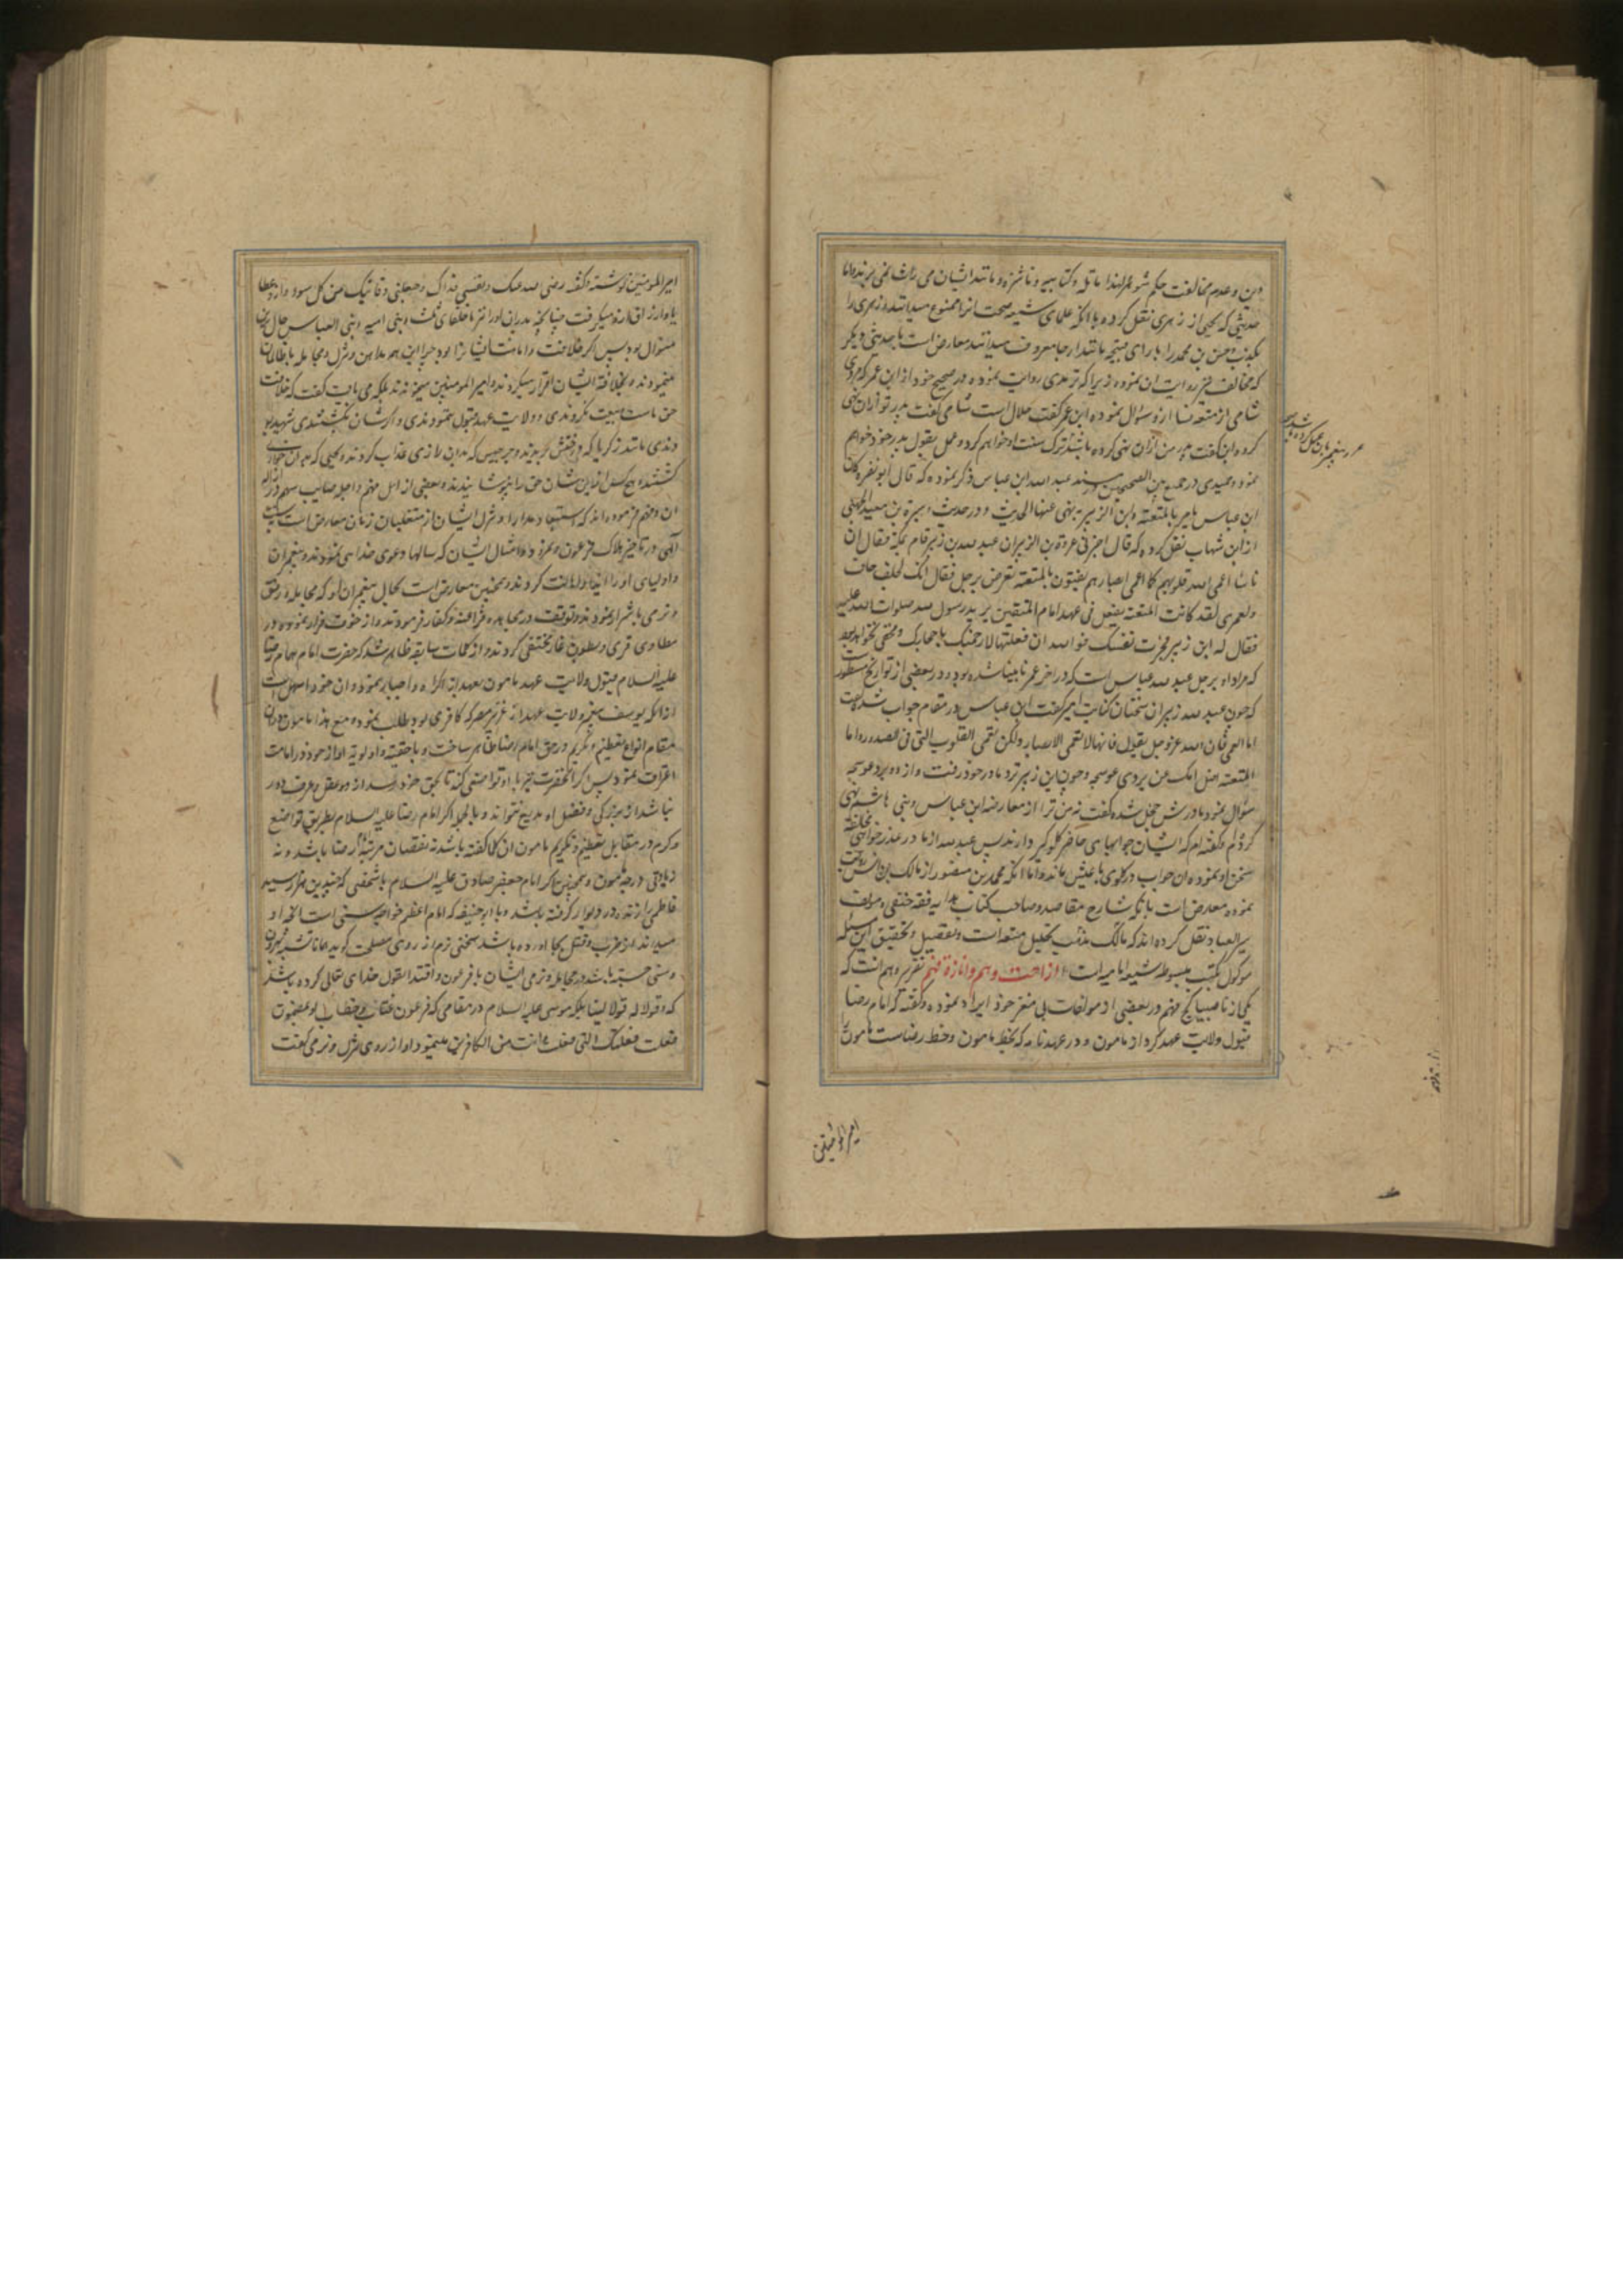 حدیثی که یحیی از زهری نقل کرده با آنکه علمای شیعه صحت انرا ممنوع میدانند و زهری را
که مخالف نیز روایت ان نموده زیرا که ترمدی روایت نموده در صحیح خود از ابن عمر که مردی
شامی از متعه نسا ازو سوال نموده ابن عمر گفت حلال است شامی گفت پدر تو ازان نهی
کرده ابن گفت پدر من ازان نهی کرده باشد ترک سنت او خواهم کرد و عمل بقول پدر خود خواهم
نمود و حمیدی در جمع بین الصحیحین در مسند عبد الله ابن عباس ذکر نموده که قال ابو نضره کان
ابن عباس یامر بالمتعة و ابن الزبیر ینهی عنها الحدیث و در حدیث
از ابن شهاب نقل کرده که قال اخبرنی عروة بن الزبیر ان عبد الله بن زبیر قام بمکة فقال ان
ناسا اعمی الله قلوبهم کما اعمی ابصارهم یفتون بالمتعة یعرض برجل فقال انک لجلف جاف
و لعمری لقد کانت المتعة یفعل فی عهد امام المتقین یرید رسول الله صلوات الله علیه
فقال له ابن زبیر فجرب نفسک فوالله ان فعلتها لارجمنک باحجارک و مخفی نخواهد بود
که مراد او برجل عبد الله عباس است که در اخر عمر نابینا شده بود و در بعضی از تواریخ مسطور
که چون عبد الله زبیر ان سخنان کنایت امیز گفت ابن عباس در مقام جواب شد گفت
اما العمی فان الله عز و جل یقول فانها لا تعمی الابصار ولکن تعمی القلوب التی فی الصدور و اما
المتعة فسل امک عن بردی عوسجه و چون ابن زبیر نزد مادر خود رفت و از دو برد عوسجه
سؤال نمود مادرش خجل شده گفت نه من ترا از معارضه ابن عباس و بنی هاشم نهی
کردم و گفته ام که ایشان جوابهای حاضر گلوگیر دارند پس عبد الله از مادر عذر خواهی
سخن او نموده ان جواب در گلوی باغیش ماند و اما انکه محمد بن منصور از مالک بن انس روایت
نموده معارض است بانکه شارح مقاصد و صاحب کتاب هدایه فقه حنفی و مولف
سیر العباد نقل کرده اند که مالک مذهب تحلیل متعه است و تفصیل و تحقیق این مسئله
موکول بکتب مبسوطه شیعه امامیه است ازاحت وهم و انارة فهم تقریر وهم انست که
یکی از ناصبیان کج فهم در بعضی از مولفات بی مغز خود ایراد نموده و گفته که امام رضا
قبول ولایت عهد کرد از مامون و در عهد نامه که بخط مامون و خط رضاست مامون را
امیر المومنین
امیر المومنین نوشته و گفته رضی الله عنک و نفسی فداک و جعلنی وقائیک من کل سوء و از و عطا
یا و ارزاق ازو میگرفت چنانچه پدران او را نیز با خلفای بنی امیه و بنی العباس حال بدین
منوال بود پس اگر خلافت و امامت ایشانرا بود چرا این همه مداهن و هزل و مجامله با ظالمان
مینمودند و بخلافة ایشان اقرار میکردند و امیر المومنین میخواندند بلکه می بایست گفت که خلافت
حق ماست و بیعت نکردندی و ولایت عهد قبول ننمودندی و اگرشان بکشتندی شهید بو
دندی مانند زکریا که در درختش بریدند و جرجیس که بدان زاری عذاب کردند و یحیی که بدان خواری
کشتند هیچ کس از این شان حق را نپوشانیدند و بعضی از اهل فهم و اجله صائب سهم در ازاله
ان وهم فرموده اند که استبعاد مدارا و هزل ایشان از متغلبان زمان معارض است بسنت
الهی در تاخیر هلاک فرعون و نمرود و امثال ایشان که سالها دعوی خدایی نمودند و پیغمبران
و اولیای او را ایذا و اهانت کردند و همچنین معارض است بحال پیغمبران او که مجامله و رفق
و نرمی با اشرار نمودند و توقف در مجاهده فراعنه و کفار فرمودند و از خوف فرار نموده در
مطاوی قری و بطون غار مختفی گردیدند و از کلمات سابقه ظاهر شد که حضرت امام همام رضا
علیه السلام قبول ولایت عهد مامون بعد از اکراه و اجبار نمود و ان خود اسهل است
ازانکه یوسف پیغمبر ولایت عهد از عزیز مصر که کافری بود طلب نموده مع هذا مامون دران
مقام انواع تعظیم و تکریم در حق امام رضا ظاهر ساخت و باحقیت و اولویة او از خود در امامت
اعتراف نمود پس اگر آنحضرت نیز با او تواضعی کند تا بحق خود رسد از ره عقل و عرف دور
نباشد از بزرگی و فضیل او هیچ نتواند و بالجمله اگر امام رضا علیه السلام بطریق تواضع
و کرم در مقابل تعظیم و تکریم مامون ان کلام گفته باشد نه نقصان مرتبه رضا باشد و نه
زیادتی درجه مامون و همچنین اگر امام جعفر صادق علیه السلام با شخصی که چندین هزار سید
فاطمی را زنده در دیوار گرفته باشد و با ابو حنیفه که امام اعظم خواجه سنی است انچه او
میداند از ضرب و قتل بجا اورده باشد سخنی نرم از روی مصلحت گوید همانا تشبه بموسی و هرون
که وقولا له قولا لینا بلکه موسی علیه السلام در مقامی که فرعون عتاب و خطاب او بمضمون
فعلت فعلتک التی فعلت و انت من الکافرین مینمود او از روی هزل و نرمی گفت